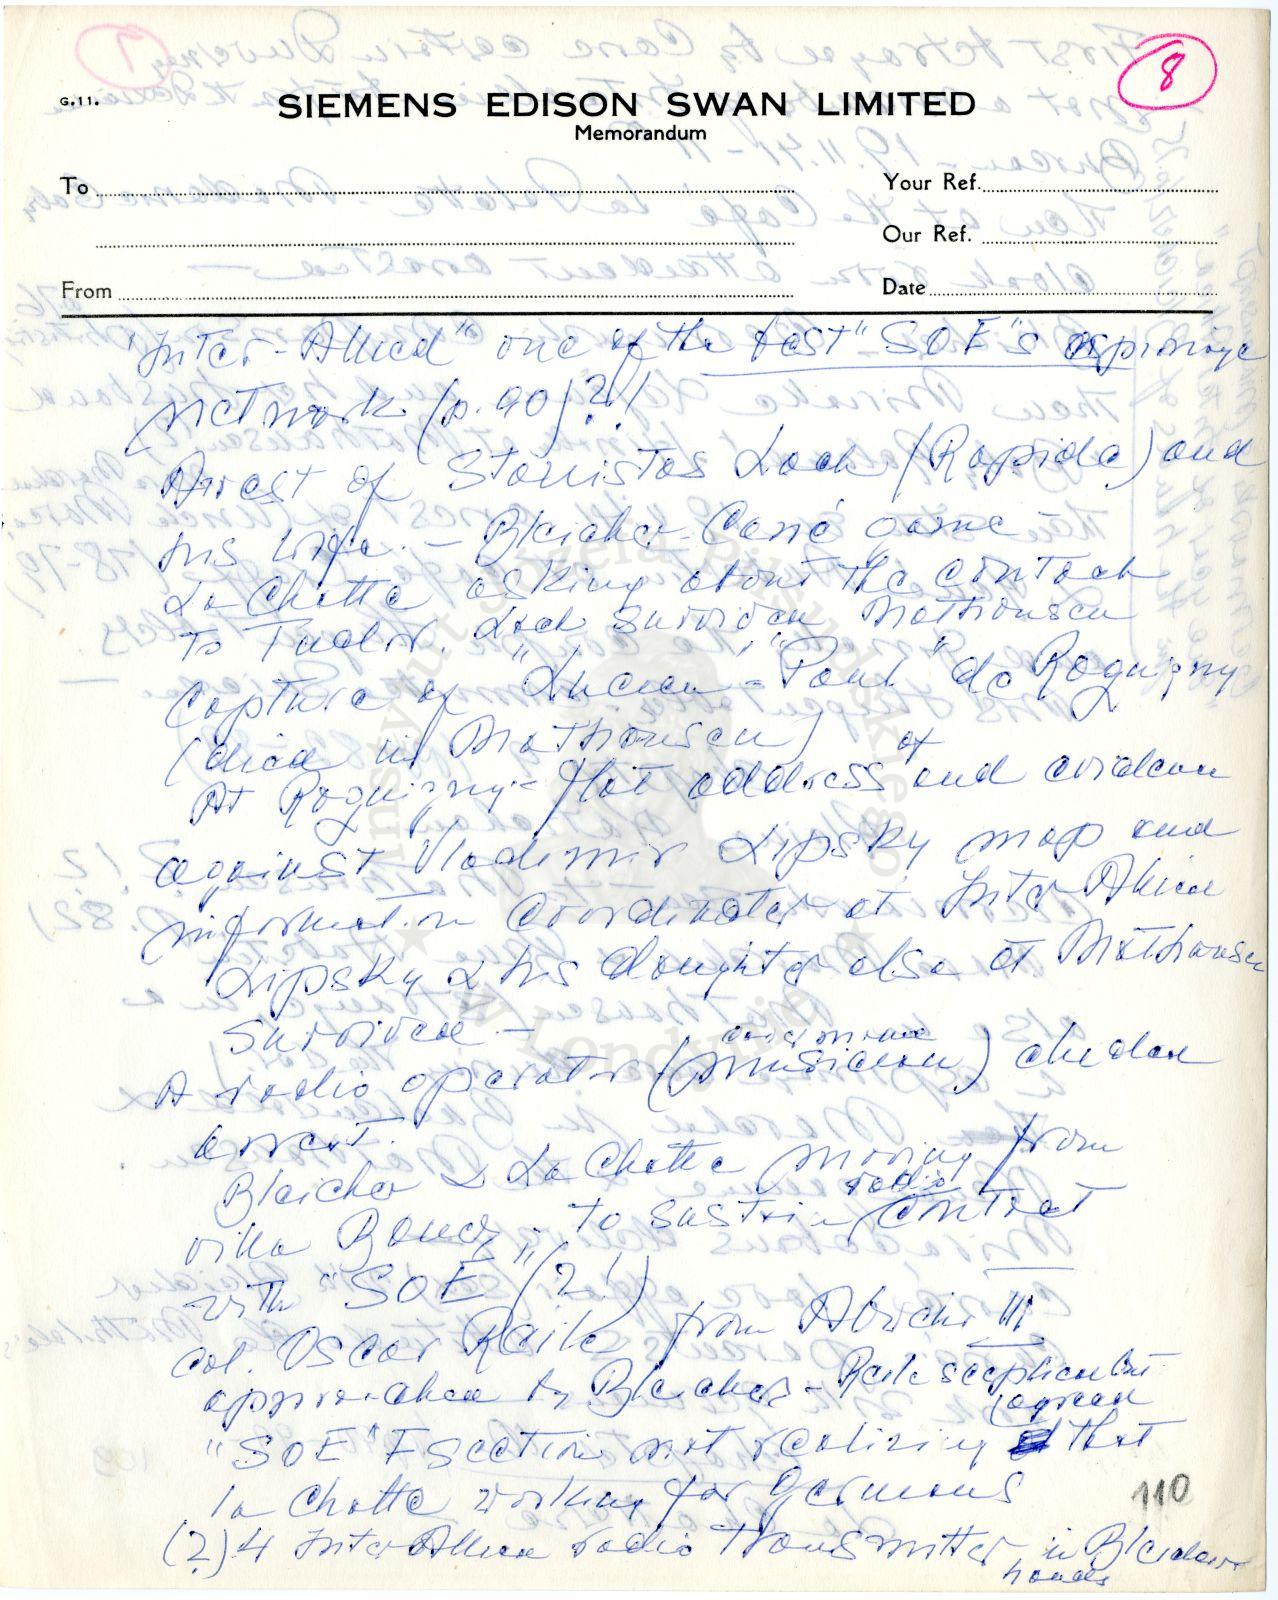 8
G.11.
SIEMENS EDISON SWAN LIMITED
Memorandum
To
Your Ref.
Our Ref.
From
Date
"Inter-Allied" one of the best "SOE"s espionage
network (p. 90)?!
Arrest of Stanistas Lach (Rapide) and
his wife. - Bleicher-Carré game -
La Chatte asking about the contack
to Tudor. Lach survived Mathausen
Capture of "Lucien" - "Paul" de Roquigny
(died in Mathausen)
At Roquigny flat address of and evidence
against Vladimir Lipsky map and
information coordinator at Inter Allied
Lipsky & his daughter also at Mathausen
survived -
A radio operator (musician) eluded
arrest.
Bleicher & La Chatte moving from
villa to sustain radio contact
with "SOE" (?!)
col. Oscar Reile from Abwehr III
approached by Bleicher - Reile sceptical but
agreed
"SOE" F section not realizing that
la Chatte working for Germans
(?) 4 Inter Allied radio transmitter in Bleicher
hands
110
Instytut Józefa Piłsudskiego
w Londynie